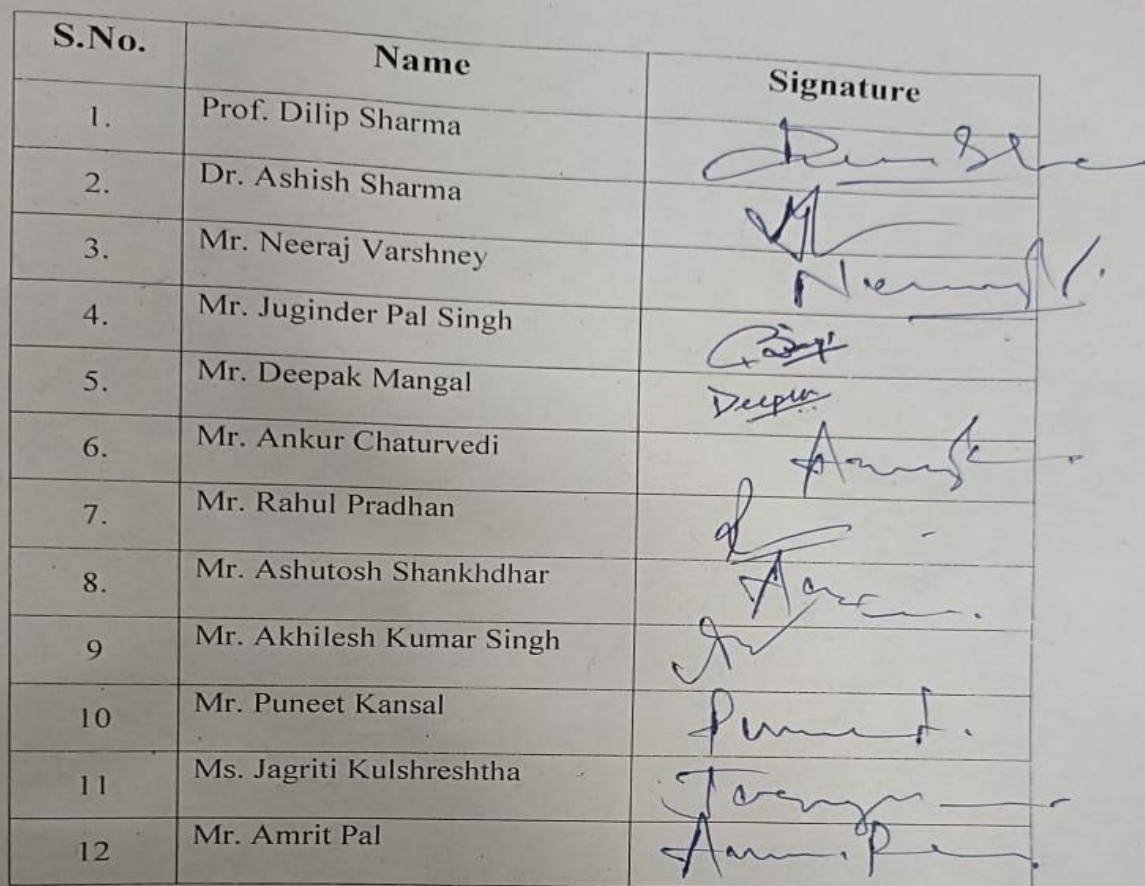 S.No. Name Signature
1. Prof. Dilip Sharma
2. Dr. Ashish Sharma
3. Mr. Neeraj Varshney
4. Mr. Juginder Pal Singh
5. Mr. Deepak Mangal
6. Mr. Ankur Chaturvedi
7. Mr. Rahul Pradhan
8. Mr. Ashutosh Shankhdhar
9 Mr. Akhilesh Kumar Singh
10 Mr. Puneet Kansal Puneet.
11 Ms. Jagriti Kulshreshtha
12 Mr. Amrit Pal